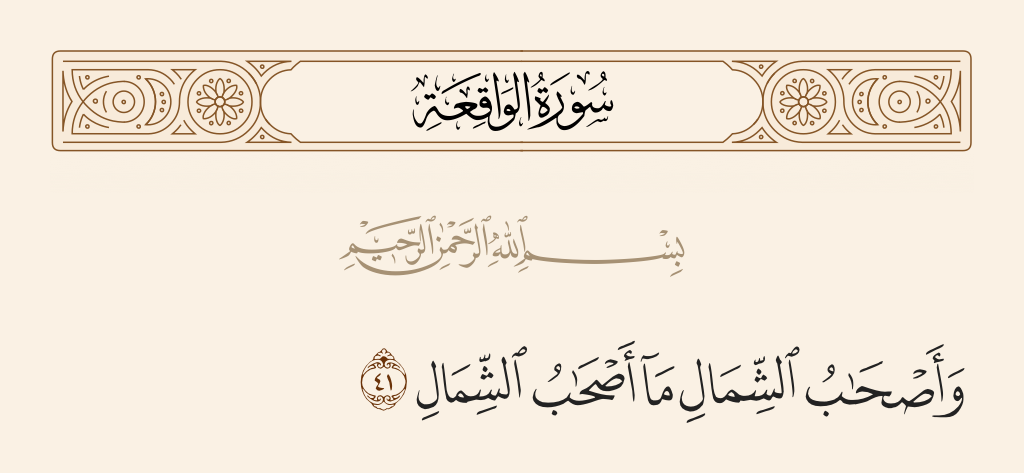 سُورَةُ الوَاقِعَةِ
بِسْمِ ٱللَّهِ ٱلرَّحْمَٰنِ ٱلرَّحِيمِ
وَأَصْحَٰبُ ٱلشِّمَالِ مَآ أَصْحَٰبُ ٱلشِّمَالِ ٤١